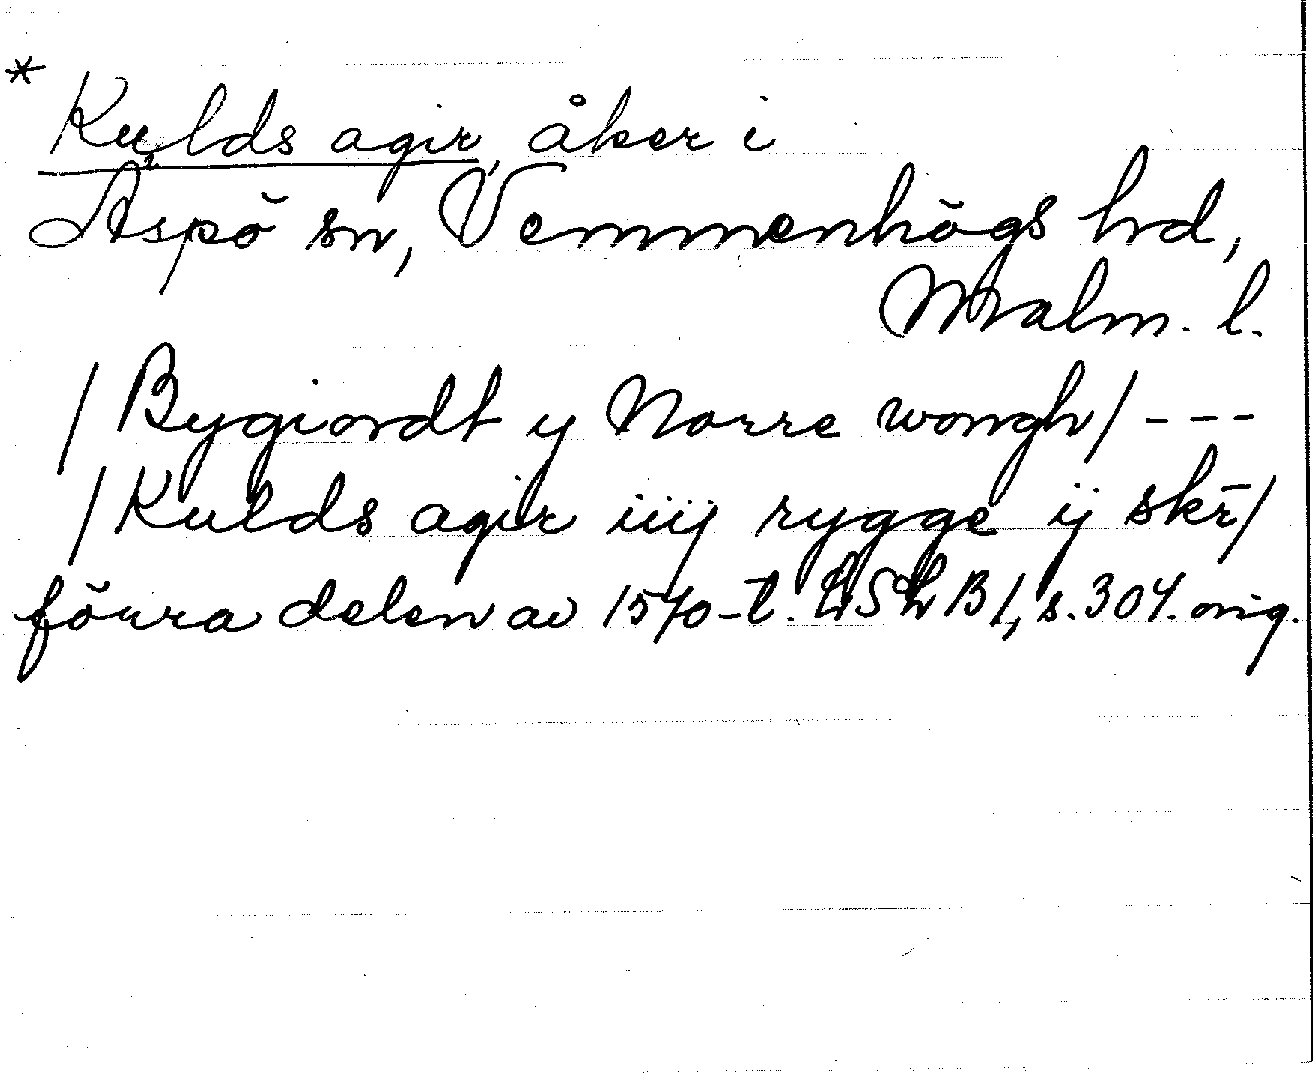 * Kulds agir, åker i
Äspö sn, Vemmenhögs hd,
Malm. l.
/ Bygiordt y Norre wongh / - - -
/ Kulds agir iiij rygge ij skr̄ /
förra delen av 1570-t. LSLB 1, s. 304. orig.